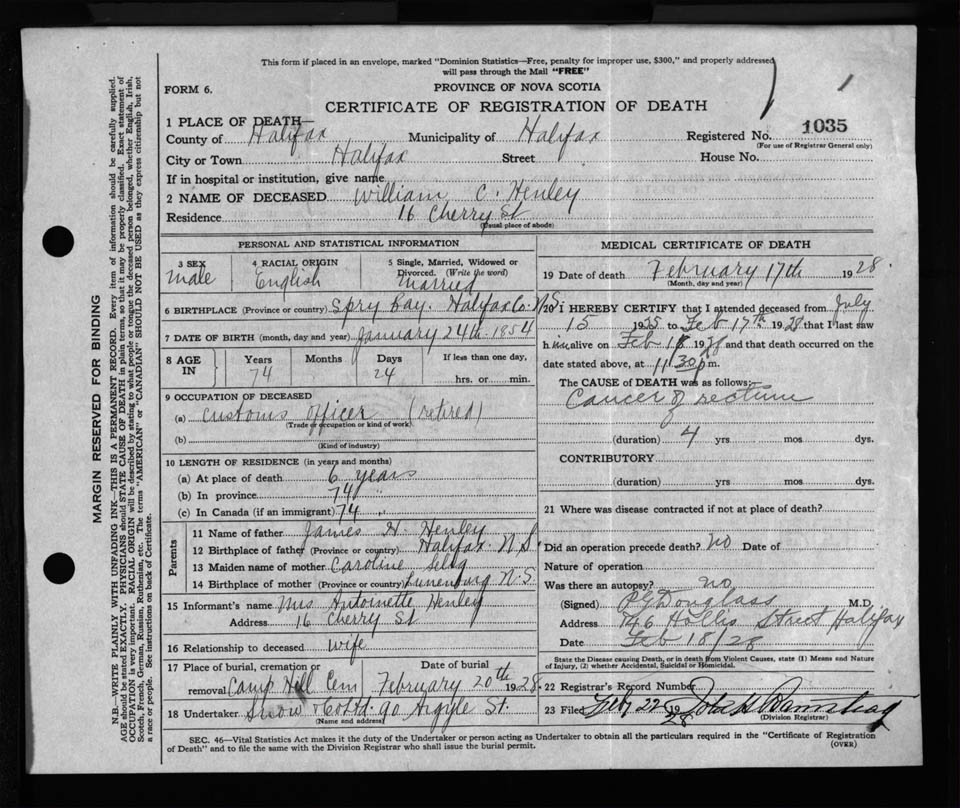 This form if placed in an envelope, marked "Dominion Statistics—Free, penalty for improper use, $300," and properly addressed
will pass through the Mail "FREE"
FORM 6.
PROVINCE OF NOVA SCOTIA
CERTIFICATE OF REGISTRATION OF DEATH
1 PLACE OF DEATH—
County of Halifax Municipality of Halifax Registered No. 1035
(For use of Registrar General only)
City or Town Halifax Street House No.
If in hospital or institution, give name
2 NAME OF DECEASED William C. Henley
Residence 16 Cherry St
(Usual place of abode)
PERSONAL AND STATISTICAL INFORMATION
3 SEX 4 RACIAL ORIGIN 5 Single, Married, Widowed or
Divorced. (Write the word)
Male English Married
6 BIRTHPLACE (Province or country) Spry Bay. Halifax Co. N.S.
7 DATE OF BIRTH (month, day and year) January 24th. 1854
8 AGE IN Years Months Days If less than one day,
74 24 hrs. or min.
9 OCCUPATION OF DECEASED
(a) Customs officer (retired)
(Trade or occupation or kind of work)
(b)
(Kind of industry)
10 LENGTH OF RESIDENCE (in years and months)
(a) At place of death 6 years
(b) In province 74 "
(c) In Canada (if an immigrant) 74 "
Parents
11 Name of father James H. Henley
12 Birthplace of father (Province or country) Halifax N.S.
13 Maiden name of mother Caroline
14 Birthplace of mother (Province or country) Lunenburg N.S.
15 Informant's name Mrs Antoinette Henley
Address 16 Cherry St
16 Relationship to deceased Wife
17 Place of burial, cremation or Date of burial
removal Camp Hill Cem February 20th 1928
18 Undertaker Snow & Co Ltd. 90 Argyle St.
(Name and address)
MEDICAL CERTIFICATE OF DEATH
19 Date of death February 17th 1928.
(Month, day and year)
20 I HEREBY CERTIFY that I attended deceased from July
15 1925 to Feb 17th 1928 that I last saw
h im alive on Feb 1928 and that death occurred on the
date stated above, at 11 30 p m.
The CAUSE of DEATH was as follows:
Cancer of rectum
(duration) 4 yrs mos dys.
CONTRIBUTORY
(duration) yrs mos dys.
21 Where was disease contracted if not at place of death?
Did an operation precede death? No Date of
Nature of operation
Was there an autopsy? no
(Signed) Douglass M.D.
Address Hollis Street Halifax
Date Feb 18/28
State the Disease causing Death, or in death from Violent Causes, state (1) Means and Nature
of Injury, (2) whether Accidental, Suicidal or Homicidal.
22 Registrar's Record Number
23 Filed Feby 22 1928
(Division Registrar)
SEC. 46—Vital Statistics Act makes it the duty of the Undertaker or person acting as Undertaker to obtain all the particulars required in the "Certificate of Registration
of Death" and to file the same with the Division Registrar who shall issue the burial permit.
(OVER)
MARGIN RESERVED FOR BINDING
N.B.—WRITE PLAINLY WITH UNFADING INK—THIS IS A PERMANENT RECORD. Every item of information should be carefully supplied.
AGE should be stated EXACTLY. PHYSICIANS should STATE CAUSE OF DEATH in plain terms, so that it may be properly classified. Exact statement of
OCCUPATION is very important. RACIAL ORIGIN will be described by stating to what people or tongue the deceased person belonged, whether English, Irish,
Scotch, French, German, Russian, Ruthenian, etc. The terms "AMERICAN" or "CANADIAN" SHOULD NOT BE USED as they express citizenship but not
a race or people. See instructions on back of Certificate.